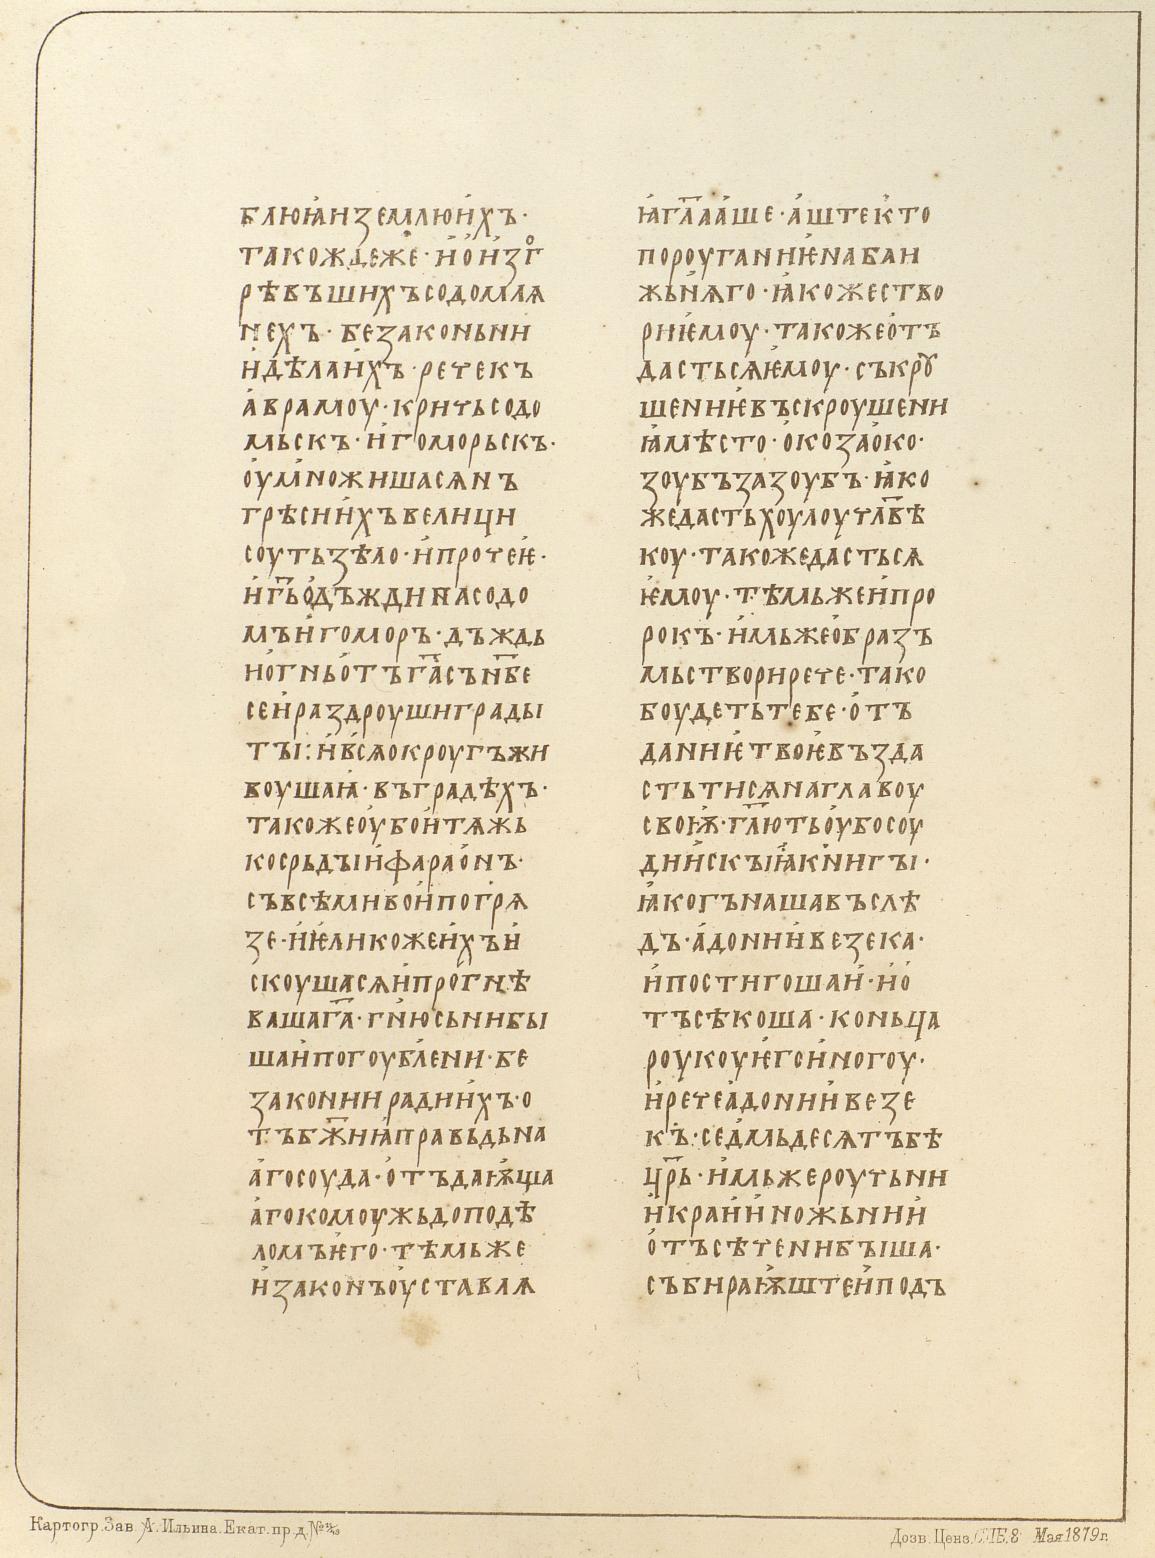 блюꙗиꙁемлюихъ·
такождеже·иоиꙁг
рѣвъшихъсодомлꙗ
нехъ·беꙁаконьни
идѣлаихъ·речекъ
аврамоу·кричьсодо
мьскъ·игоморьскъ·
оумножишасѧнъ
грѣсниихъвелици
соутьꙁѣло·ипрочеѥ·
игь҃одъждинасодо
мъигоморъ·дъждь
ногньотъга҃съньбе
сеираꙁдроушиграды
ты:·ивсѧокроугъжи
воущаꙗ·въградѣхъ·
такожеоубоитѧжь
косрьдыифараонъ·
съвсѣмибоипогрѧ
ꙁе·иѥликожеихъи
скоушасѧипрогнѣ
вашага҃·гнюсьнибы
шаипогоублени·бе
ꙁаконииради­ихъ·о
тъбж҃иꙗправьдьна
агосоуда·отъдаѭща
агокомоужьдоподѣ
ломъѥго·тѣмьже
иꙁаконъоуставлѧ
ꙗгл҃ааше·аштекто
пороуганиѥнабли
жьнѧго·ꙗкожество
риѥмоу·такожеотъ
дастьсѧѥмоу·съкроу
шениѥвъскроушени
ꙗмѣсто·окоꙁаоко·
ꙁоубъꙁаꙁоубъ·ꙗко
жедастьхоулоучл҃вѣ
коу·такожедастьсѧ
ѥмоу·тѣмьжеипро
рокъ·имьжеобраꙁъ
мьствориречеˑтако
боудетьтебе·отъ
данииѥтвоѥвъꙁда
стьтисѧнаглавоу
своѭ·гл҃ютьоубосоу
дийскыꙗкнигы·
ꙗкогънашавъслѣ
дъ·адониивеꙁека·
ипостигошаи·ио
тъсѣкоша·коньца
роукоуѥгоиногоу·
иречеадонииве ꙁе
къ·седмьдесѧтъбѣ
цр҃ь·имьжероучьни
икраиинож­ьнии
отъсѣченибыша·
събираѭштеиподъ
Картогр. Зав. А. Ильина. Екат. пр. д. №
Дозв. Ценз. СПБ. 8 Мая 1879 г.